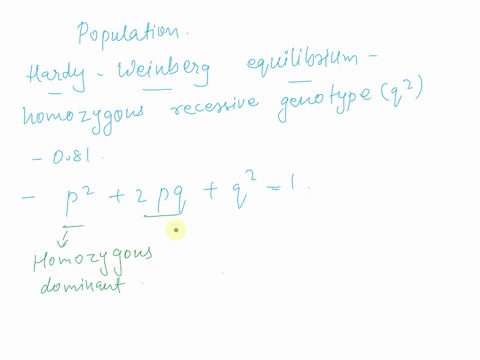 Population.
Hardy - Weinberg equilibrium -
homozygous recessive genotype (q²)
- 0.81.
- p² + 2pq + q² = 1.
Homozygous
dominant.